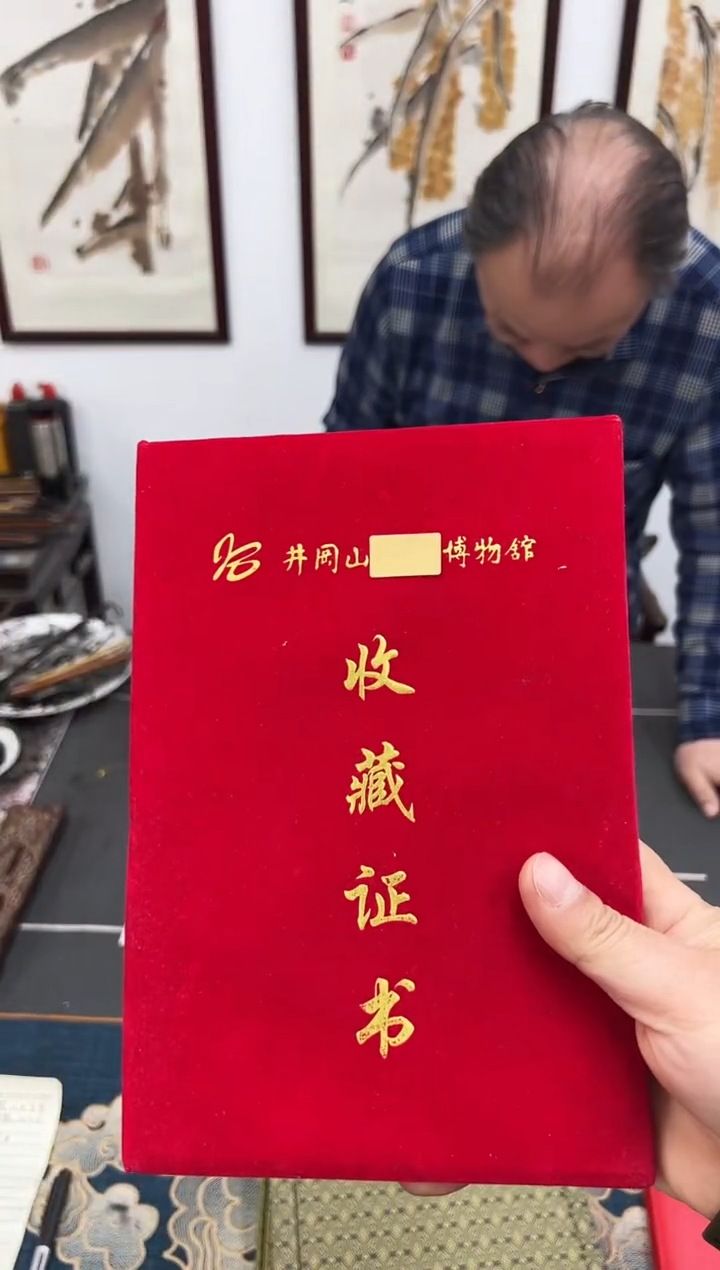 井冈山 博物馆
收
藏
证
书